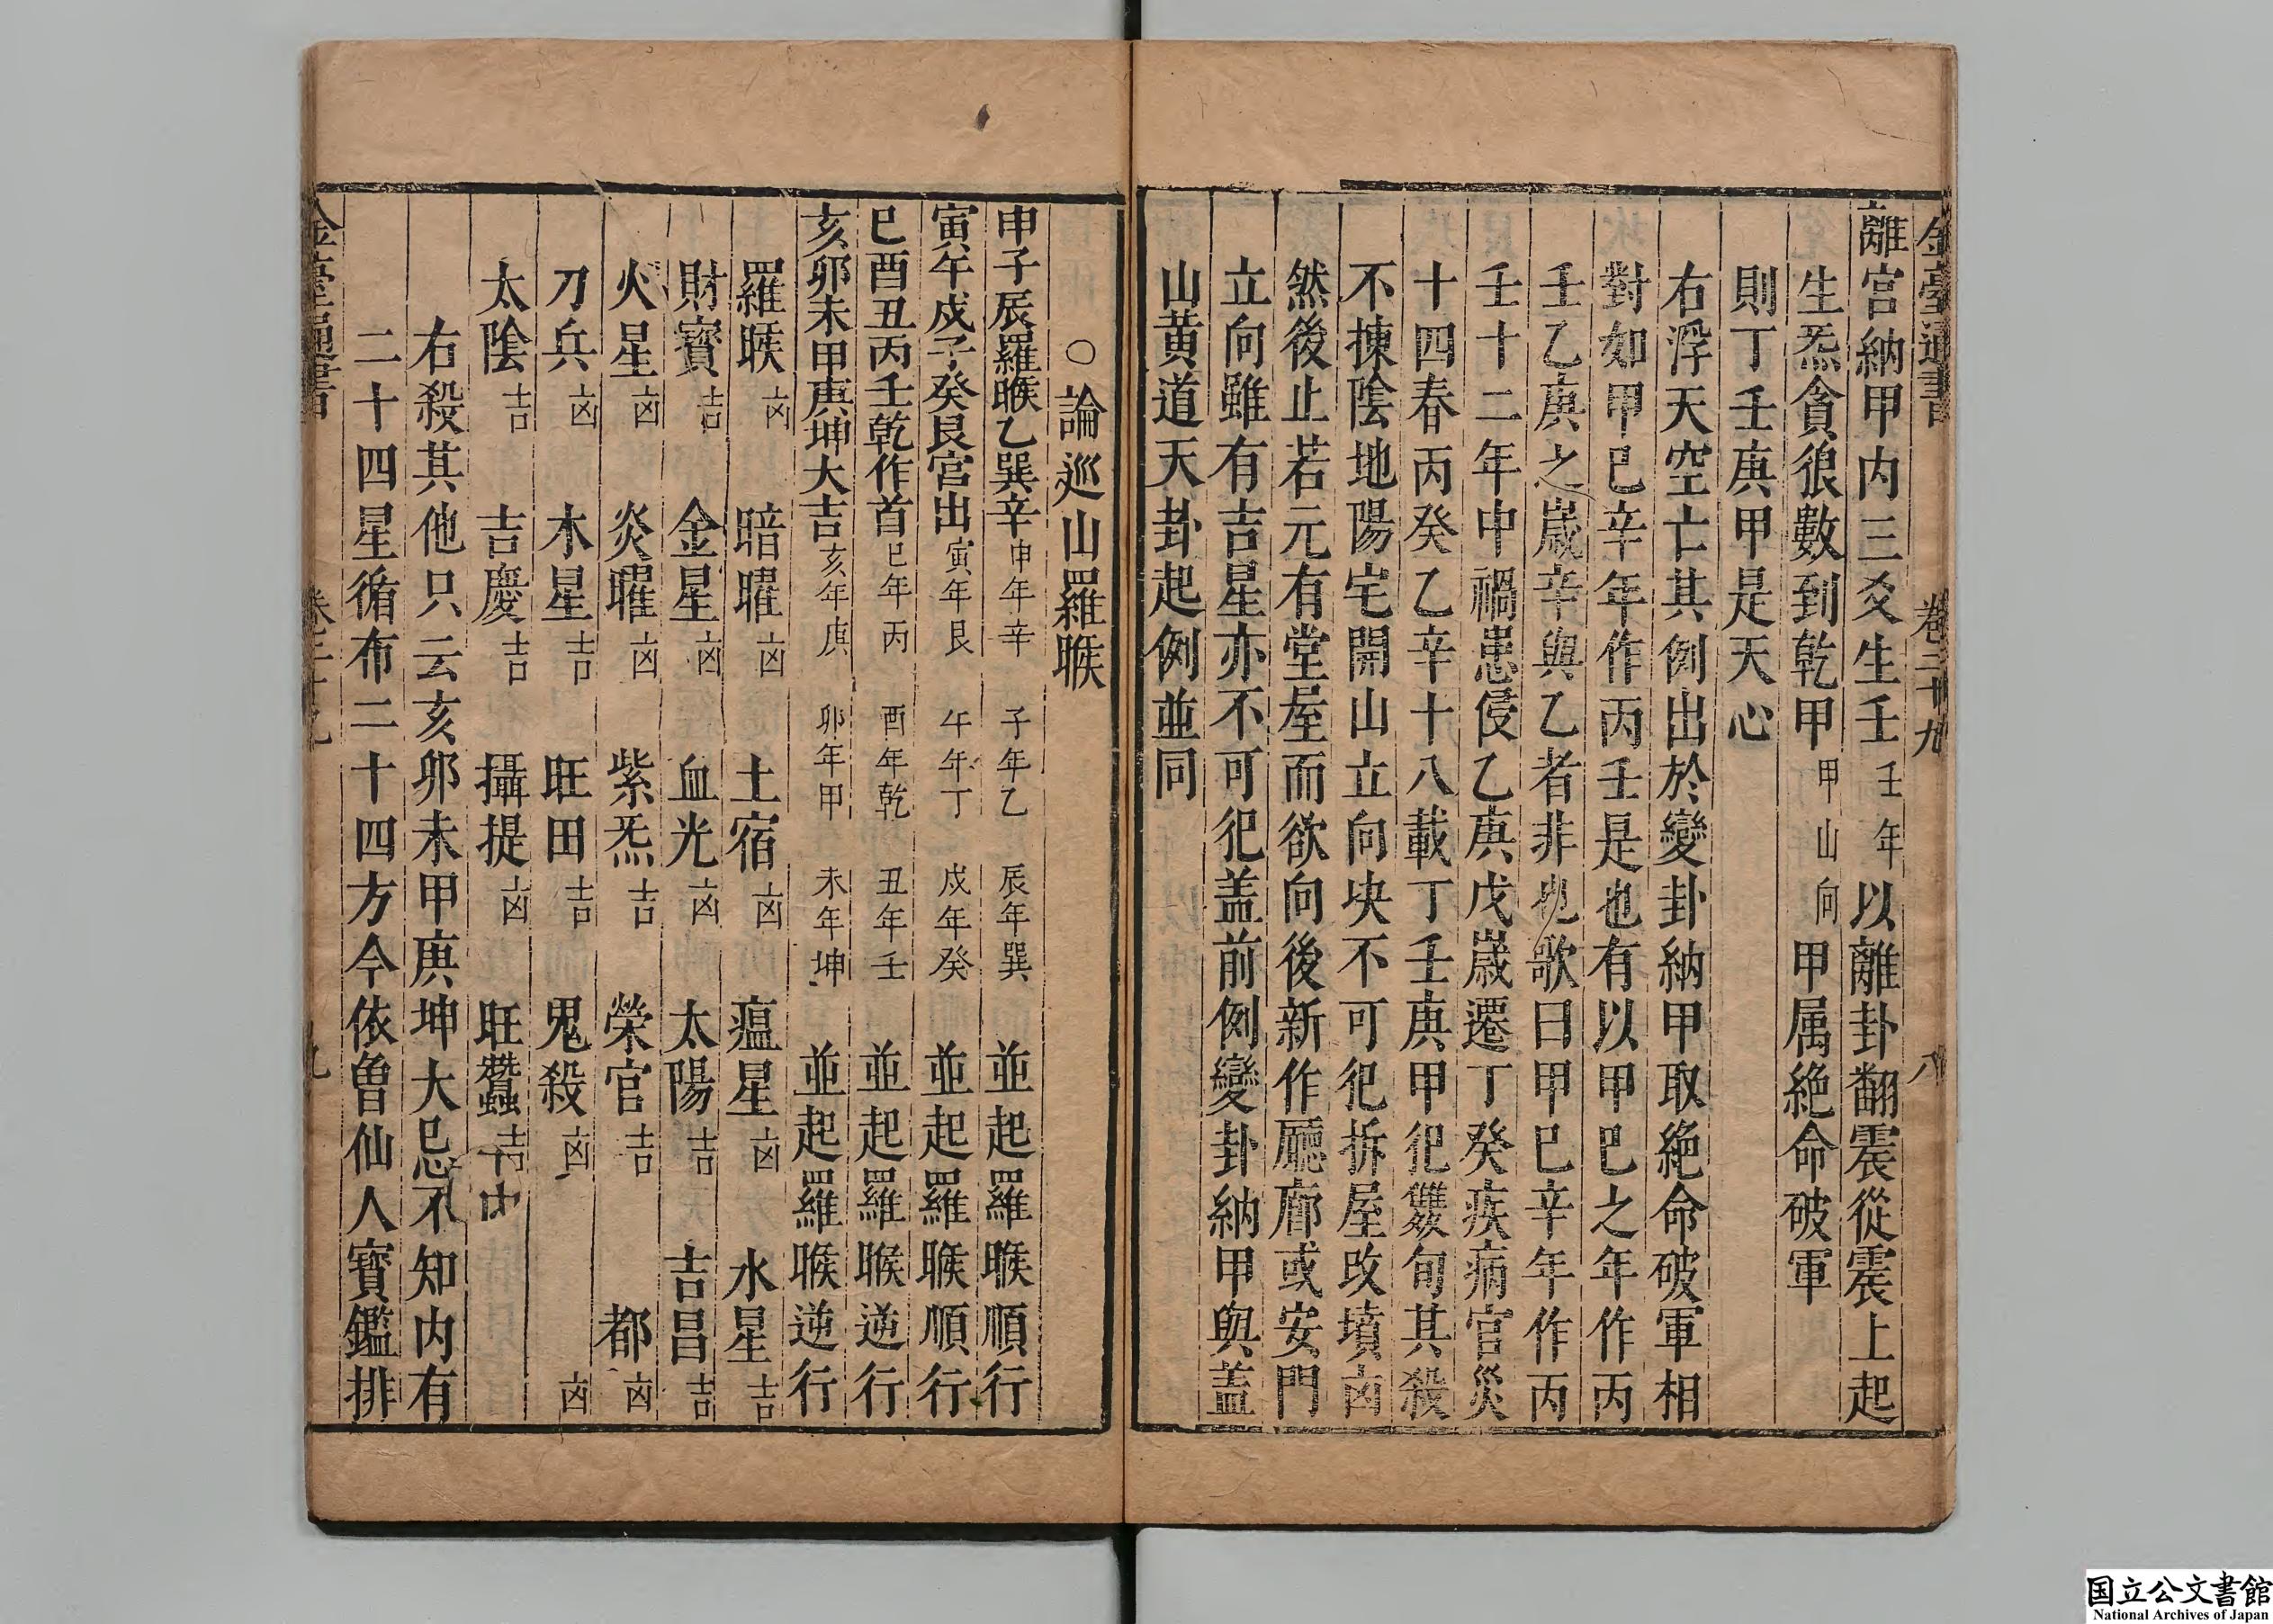 金臺通書 卷三十九 八
離宮納甲内三爻生壬壬年以離卦翻震從震上起
生炁貪狼數到乾甲甲山向甲属絶命破軍
則丁壬庚甲是天心
右浮天空亡其例出於變卦納甲取絶命破軍相
對如甲巳辛年作丙壬是也有以甲巴之年作丙
壬乙庚之歲辛與乙者非也歌曰甲巳辛年作丙
壬十二年中禍患侵乙庚戊歲遷丁癸疾病官災
十四春丙癸乙辛十八載丁壬庚甲犯雙旬其殺
不揀隂地陽宅開山立向坎不可犯拆屋改墳凶
然後止若元有堂屋而欲向後新作廳廊或安門
立向雖有吉星亦不可犯盖前例變卦納甲與盖
山黄道天卦起例並同
○論巡山羅睺
申子辰羅睺乙巽辛申年辛 子年乙 辰年巽 並起羅睺順行
寅午戌子癸艮宮出寅年艮 午年丁 戌年癸 並起羅睺順行
巳酉丑丙壬乾作首巳年丙 酉年乾 丑年壬 並起羅睺逆行
亥卯未甲庚坤大吉亥年庚 卯年甲 未年坤 並起羅睺逆行
羅睺凶 暗曜凶 土宿凶 瘟星凶 水星吉
財寳吉 金星凶 血光凶 太陽吉 吉昌吉
火星凶 炎曜凶 紫炁吉 榮官吉 都 凶
刀兵凶 木星吉 旺田吉 鬼殺凶 凶
太隂吉 吉慶吉 攝提凶 旺蠶吉
右殺其他只云亥卯未甲庚坤大忌不知内有
二十四星循布二十四方今依曾仙人寳鑑排
金臺通書 卷三十九 九
国立公文書館
National Archives of Japan